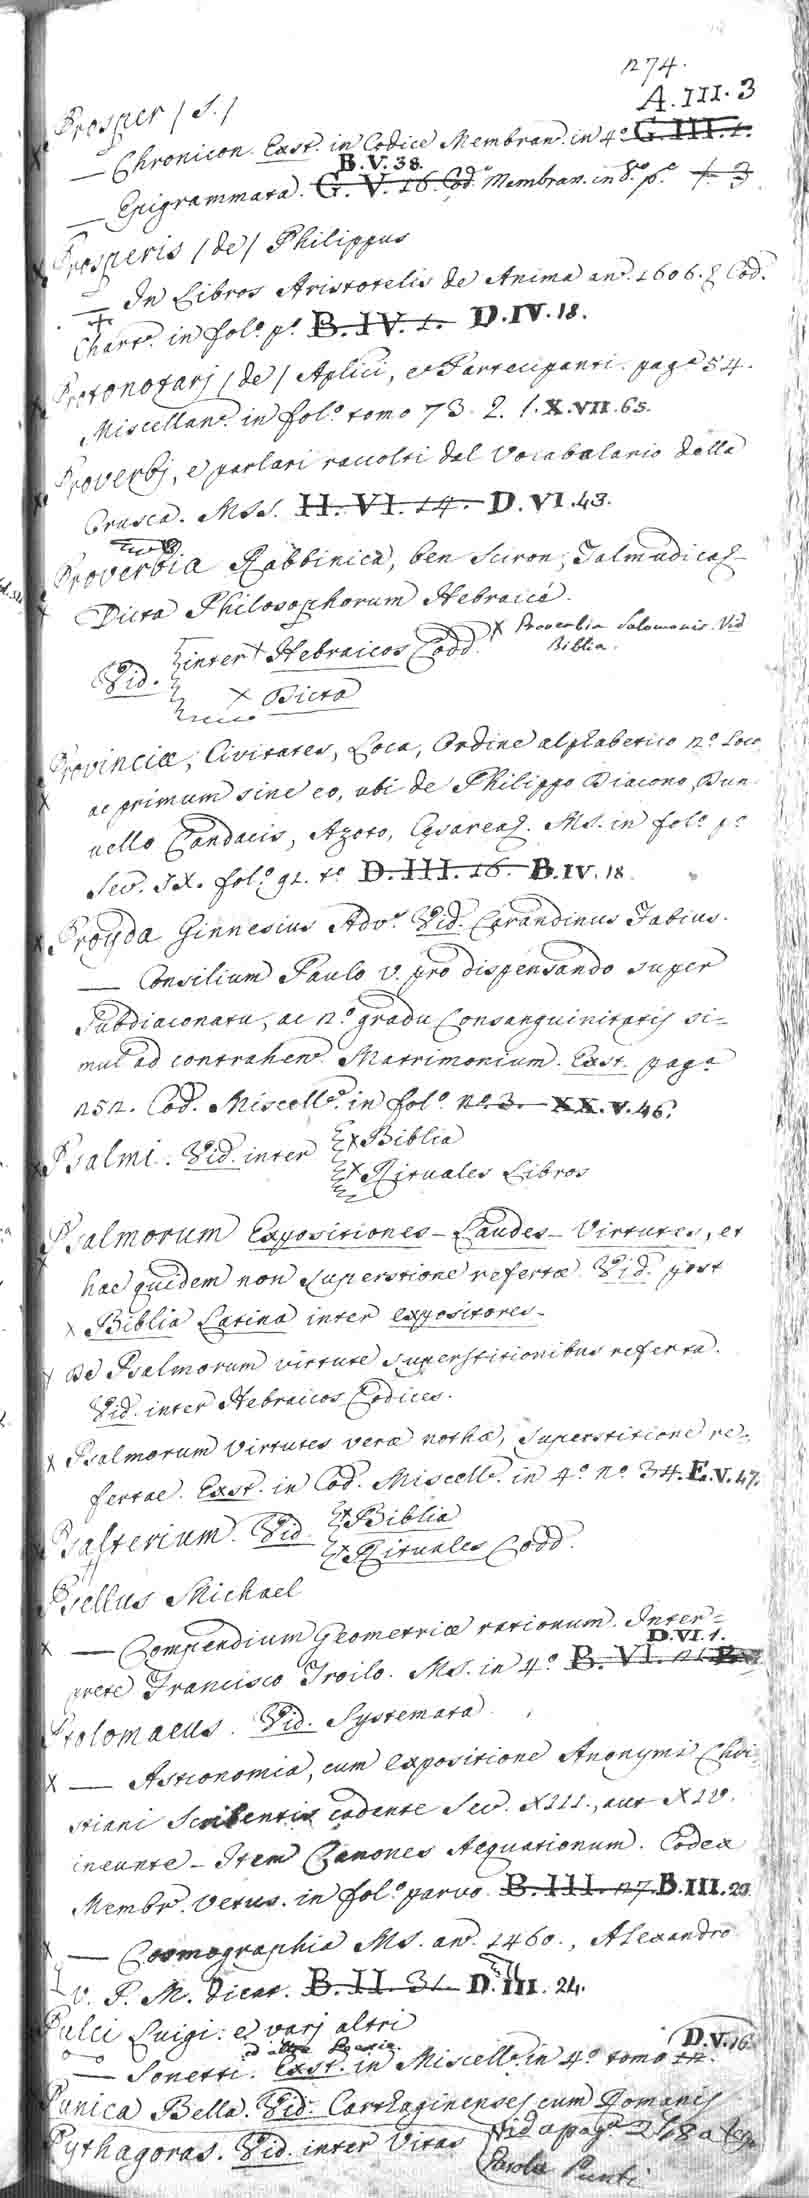 274.
Prosper / S. /
A. III. 3
— Chronicon. Exst. in Codice Membran. in 4.º G. III. 1.
B. V. 38.
— Epigrammata. G. V. 16. Cod.º Membran. in 8.º p.º 1. 3
Prosperis / de / Philippus
— In Libros Aristotelis de Anima an.º 1606. & Cod.
Chart.º in fol.º p.º B. IV. 1. D. IV. 18.
Protonotarj / de / Aplici, e Partecipanti. pag.ª 54.
Miscellan.º in fol.º tomo 73. 2. 1. X. VII. 65.
Proverbj, e parlari raccolti dal Vocabolario della
Crusca. MSS. H. VI. 14. D. VI. 43.
Proverbia Rabbinica, ben Sciron, Talmudicaq.
Dicta Philosophorum Hebraicè.
Vid. inter × Hebraicos Codd. × Proverbia Salomonis. Vid
Biblia.
× Dicta
Provinciæ, Civitates, Loca, Ordine alphabetico 2.º Loco
ac primum sine eo, ubi de Philippo Diacono, Dun-
uello Candacis, Azoto, Cęsareaq. MS. in fol.º p.º
Sec. IX. fol.º 91. t.º D. III. 16. B. IV. 18.
Proyda Ginnesius Adv.º Vid. Carandinus Fabius.
— Consilium Paulo V. pro dispensando super
Subdiaconatu, ac 2.º gradu Consanguinitatis si=
mul ad contrahen.º Matrimonium. Exst. pag.ª
252. Cod. Miscell.º in fol.º n.º 3. XX. V. 46.
Psalmi. Vid. inter × Biblia
× Rituales Libros
Psalmorum Expositiones – Laudes – Virtutes, et
hac quidem non superstione refertæ. Vid. post
× Biblia Latina inter expositores.
× De Psalmorum virtute superstitionibus referta.
Vid. inter Hebraicos Codices.
× Psalmorum Virtutes veræ nothæ, superstitione re-
fertae. Exst. in Cod. Miscell.º in 4.º n.º 34. E. V. 47.
Psalterium. Vid. × Biblia
× Rituales Codd.
Psellus Michael
× — Compendium Geometriæ rationum. Inter=
D. VI. 1.
prete Francisco Troilo. MS. in 4.º B. VI. 21
Ptolomaeus. Vid. Systemata.
× — Astronomia, cum expositione Anonymi Chri-
stiani Scribentis cadente Sec. XIII., aut XIV.
ineunte – Item Canones Aequationum. Codex
Membr.º Vetus. in fol.º parvo. B. III. 27. B. III. 29
× — Cosmographia MS. an.º 1460., Alexandro
V. P. M. dicat. B. II. 31. D. III. 24.
Pulci Luigi: e varj altri
d'altre Poesie. D. V. 16
— Sonetti. Exst. in Miscell.º in 4.º tomo 12.
Punica Bella. Vid. Carthaginenses cum Romanis
Pythagoras. Vid. inter Vitas Vid a pag.ª 248 a
Parola Punti